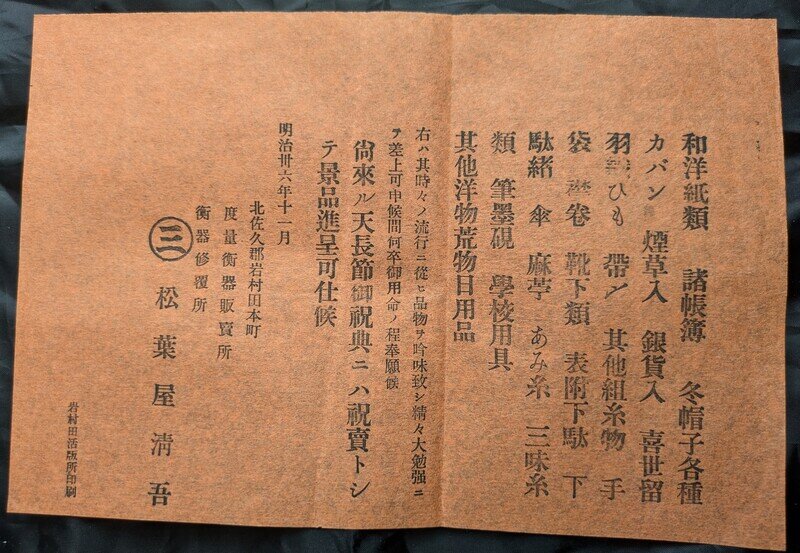 和洋紙類 諸帳簿 冬帽子各種
カバン 煙草入 銀貨入 喜世留
羽織ひも 帯〆 其他組糸物 手
袋 襟卷 靴下類 表附下駄 下
駄緒 傘 麻苧 あみ糸 三味糸
類 筆墨硯 學校用具
其他洋物荒物日用品
右ハ其時々ノ流行ニ從ヒ品物ヲ吟味致シ精々大勉强ニ
テ差上可申候間何卒御用命ノ程奉願候
尙來ル天長節御祝典ニハ祝賣トシ
テ景品進呈可仕候
明治卅六年十一月
北佐久郡岩村田本町
度量衡器販賣所
衡器修覆所
㊂ 松葉屋淸吾
岩村田活版所印刷